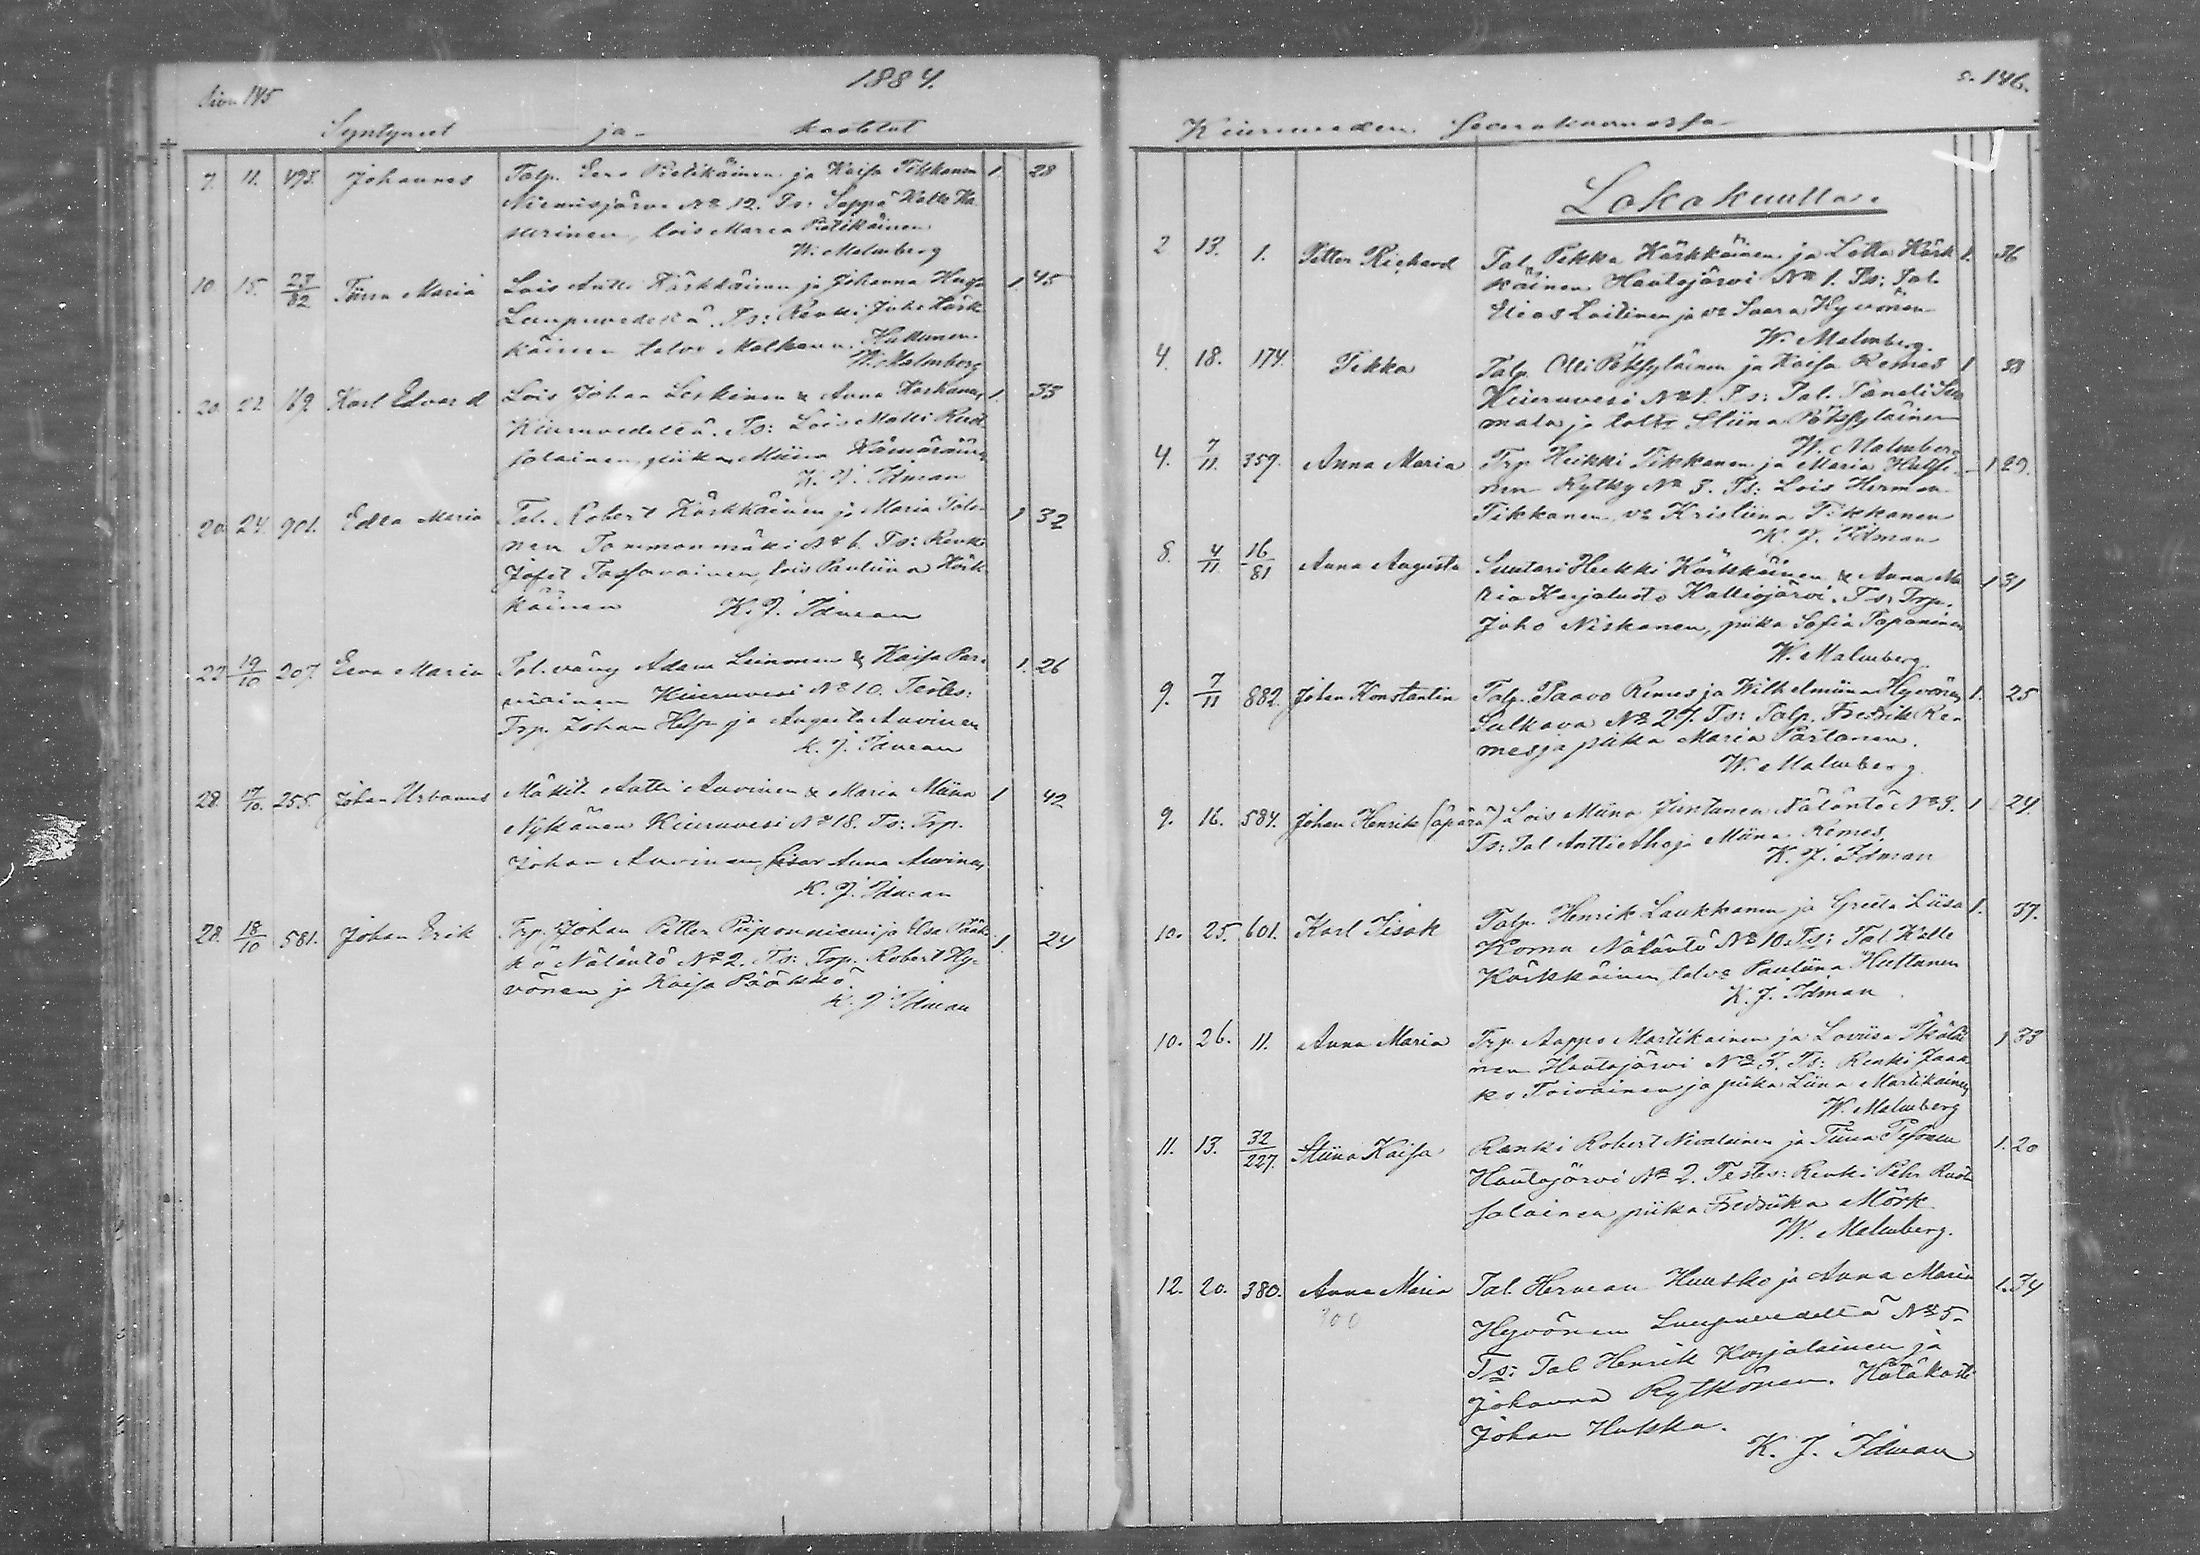 1884.
Siv. 145
Syntyneet ja kastetut
7. 11. 493. Johannes Talp. Eero Pietikäinen ja Kaisa Tikkanen 1. 28
Niemisjärvi № 12. Ts: Seppä Kalle Ka-
surinen, lois Maria Pietikäinen
W. Malmberg
10 15. 23/82 Maria Lois Antti Kärkkäinen ja Johanna 1. 45
Luupuvedeltä. Ts: Renki Juho Kärk-
käinen
W. Malmberg
20. 22 169 Karl Edvard Lois Johan Leskinen & Anna 1. 33
Kiuruvedeltä. Ts: Lois Matti Ruot-
salainen, piika Miina Kämäräinen
K. J. Idman
20. 24. 901. Edla Maria Tal. Robert Kärkkäinen ja Maria 1 32
nen Tommonmäki № 6. Ts: Renki
Jafet Tossavainen, lois Pauliina Kärk-
käinen K. J. Idman
22 19/10 207. Eeva Maria Tal. vävy Adam Leinonen & Kaisa Par- 1. 26
viainen Kiuruvesi № 10. Testes:
Trp. Johan ja Augusta Auvinen
K. J. Idman
28. 17/10. 255. Johan Urbanus Mäkit. Antti Auvinen & Maria Miina 1 42
Nykänen Kiuruvesi № 18. Ts: Trp.
Johan Auvinen sisar Anna Auvinen
K. J. Idman
28. 18/10 581. Johan Erik Trp. Johan Petter Piiponniemi ja Elsa Pääk- 1. 24
kö Näläntö № 2. Ts: Trp. Robert Hy-
vönen ja Kaisa Pääkkö.
K. J. Idman
s. 146.
Kiuruveden Seurakunnassa
Lokakuulla.
2 13. 1. Petter Richard Tal. Pekka Kärkkäinen ja Lotta Kärk- 1. 36
käinen Hautajärvi № 1. Ts: Tal.
Elias Laitinen ja vo Saara Hyvönen
W. Malmberg.
4. 18. 174. Pekka Talp. Olli Pöksyläinen ja Kaisa Remes 1 38
Kiuruvesi № 1. Ts: Tal. Taneli
mala ja Stiina Pöksyläinen
W. Malmberg
4. 7/11. 357. Anna Maria Trp. Heikki Tikkanen ja Maria 1 29.
nen Rytky № 3. Ts: Lois Herman
Tikkanen, vo Kristiina Tikkanen
K. J. Idman
8. 4/11. 16/81 Anna Augusta Suutari Heikki Kärkkäinen & Anna Ma- 1 31
ria Karjalusto Kalliojärvi. Ts: Trp.
Juho Niskanen, piika Sofia Tapaninen
W. Malmberg.
9. 7/11 882. Johan Konstantin Talp. Paavo Remes ja Wilhelmiina Hyvönen 1. 25
Sulkava № 27. Ts: Talp. Fredrik Re-
mes ja piika Maria Partanen.
W. Malmberg.
9. 16. 584. Johan Henrik (äpärä) Lois Miina Juntunen Näläntö № 3. 1 24.
Ts: Tal Antti Aho ja Miina Remes.
K. J. Idman
10. 25. 601. Karl Iisak Talp. Henrik Laukkanen ja Greeta Liisa 1. 37.
Korna Näläntö № 10. Ts: Tal Kalle
Kärkkäinen, talvo Pauliina Huttunen
K. J. Idman
10. 26. 11. Anna Maria Trp. Aappo Martikainen ja Loviisa 1 33
nen Hautajärvi № 3. Ts: Renki Jaak-
ko Toivainen ja piika Liina Martikainen
W. Malmberg
11. 13. 32/227. Stiina Kaisa Renki Robert Nivalainen ja Tiina Pesonen 1. 20
Hautajärvi № 2. Testes: Renki Pehr Ruot-
salainen piika Fredriika Mörk
W. Malmberg.
12. 20. 380. Anna Maria Tal. Herman Huusko ja Anna Maria 1. 34
Hyvönen Luupuvedeltä № 5.
Ts: Tal Henrik Karjalainen ja
Johanna Rytkönen. Hätäkasti
Johan Hukka.
K. J. Idman